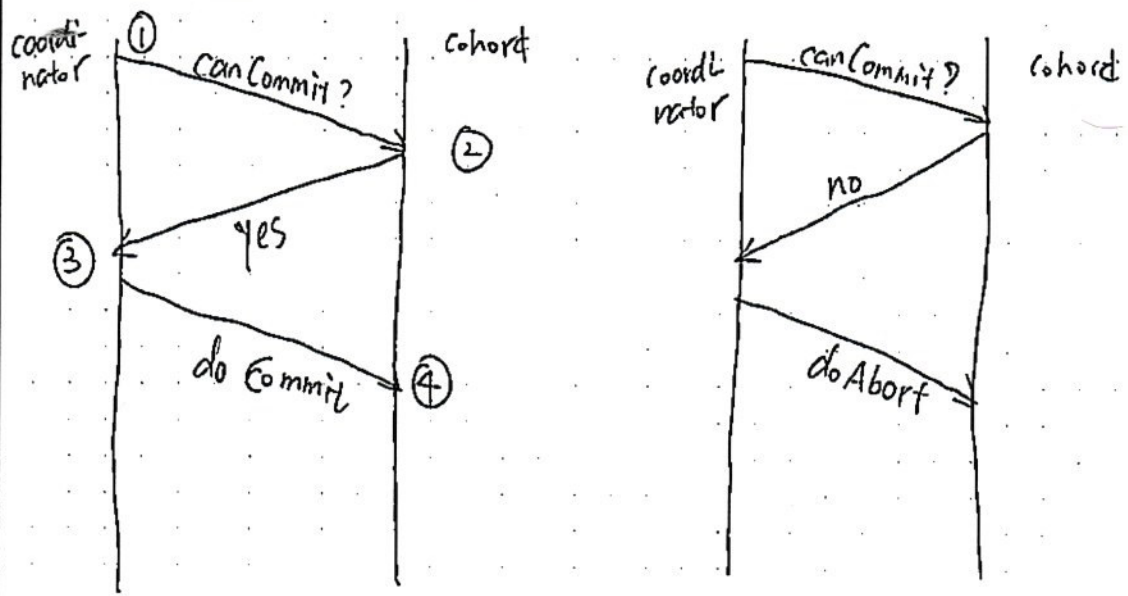 coordi-
nator
①
canCommit?
cohord
②
yes
③
do Commit
④
coordi
nator
canCommit?
cohord
no
doAbort